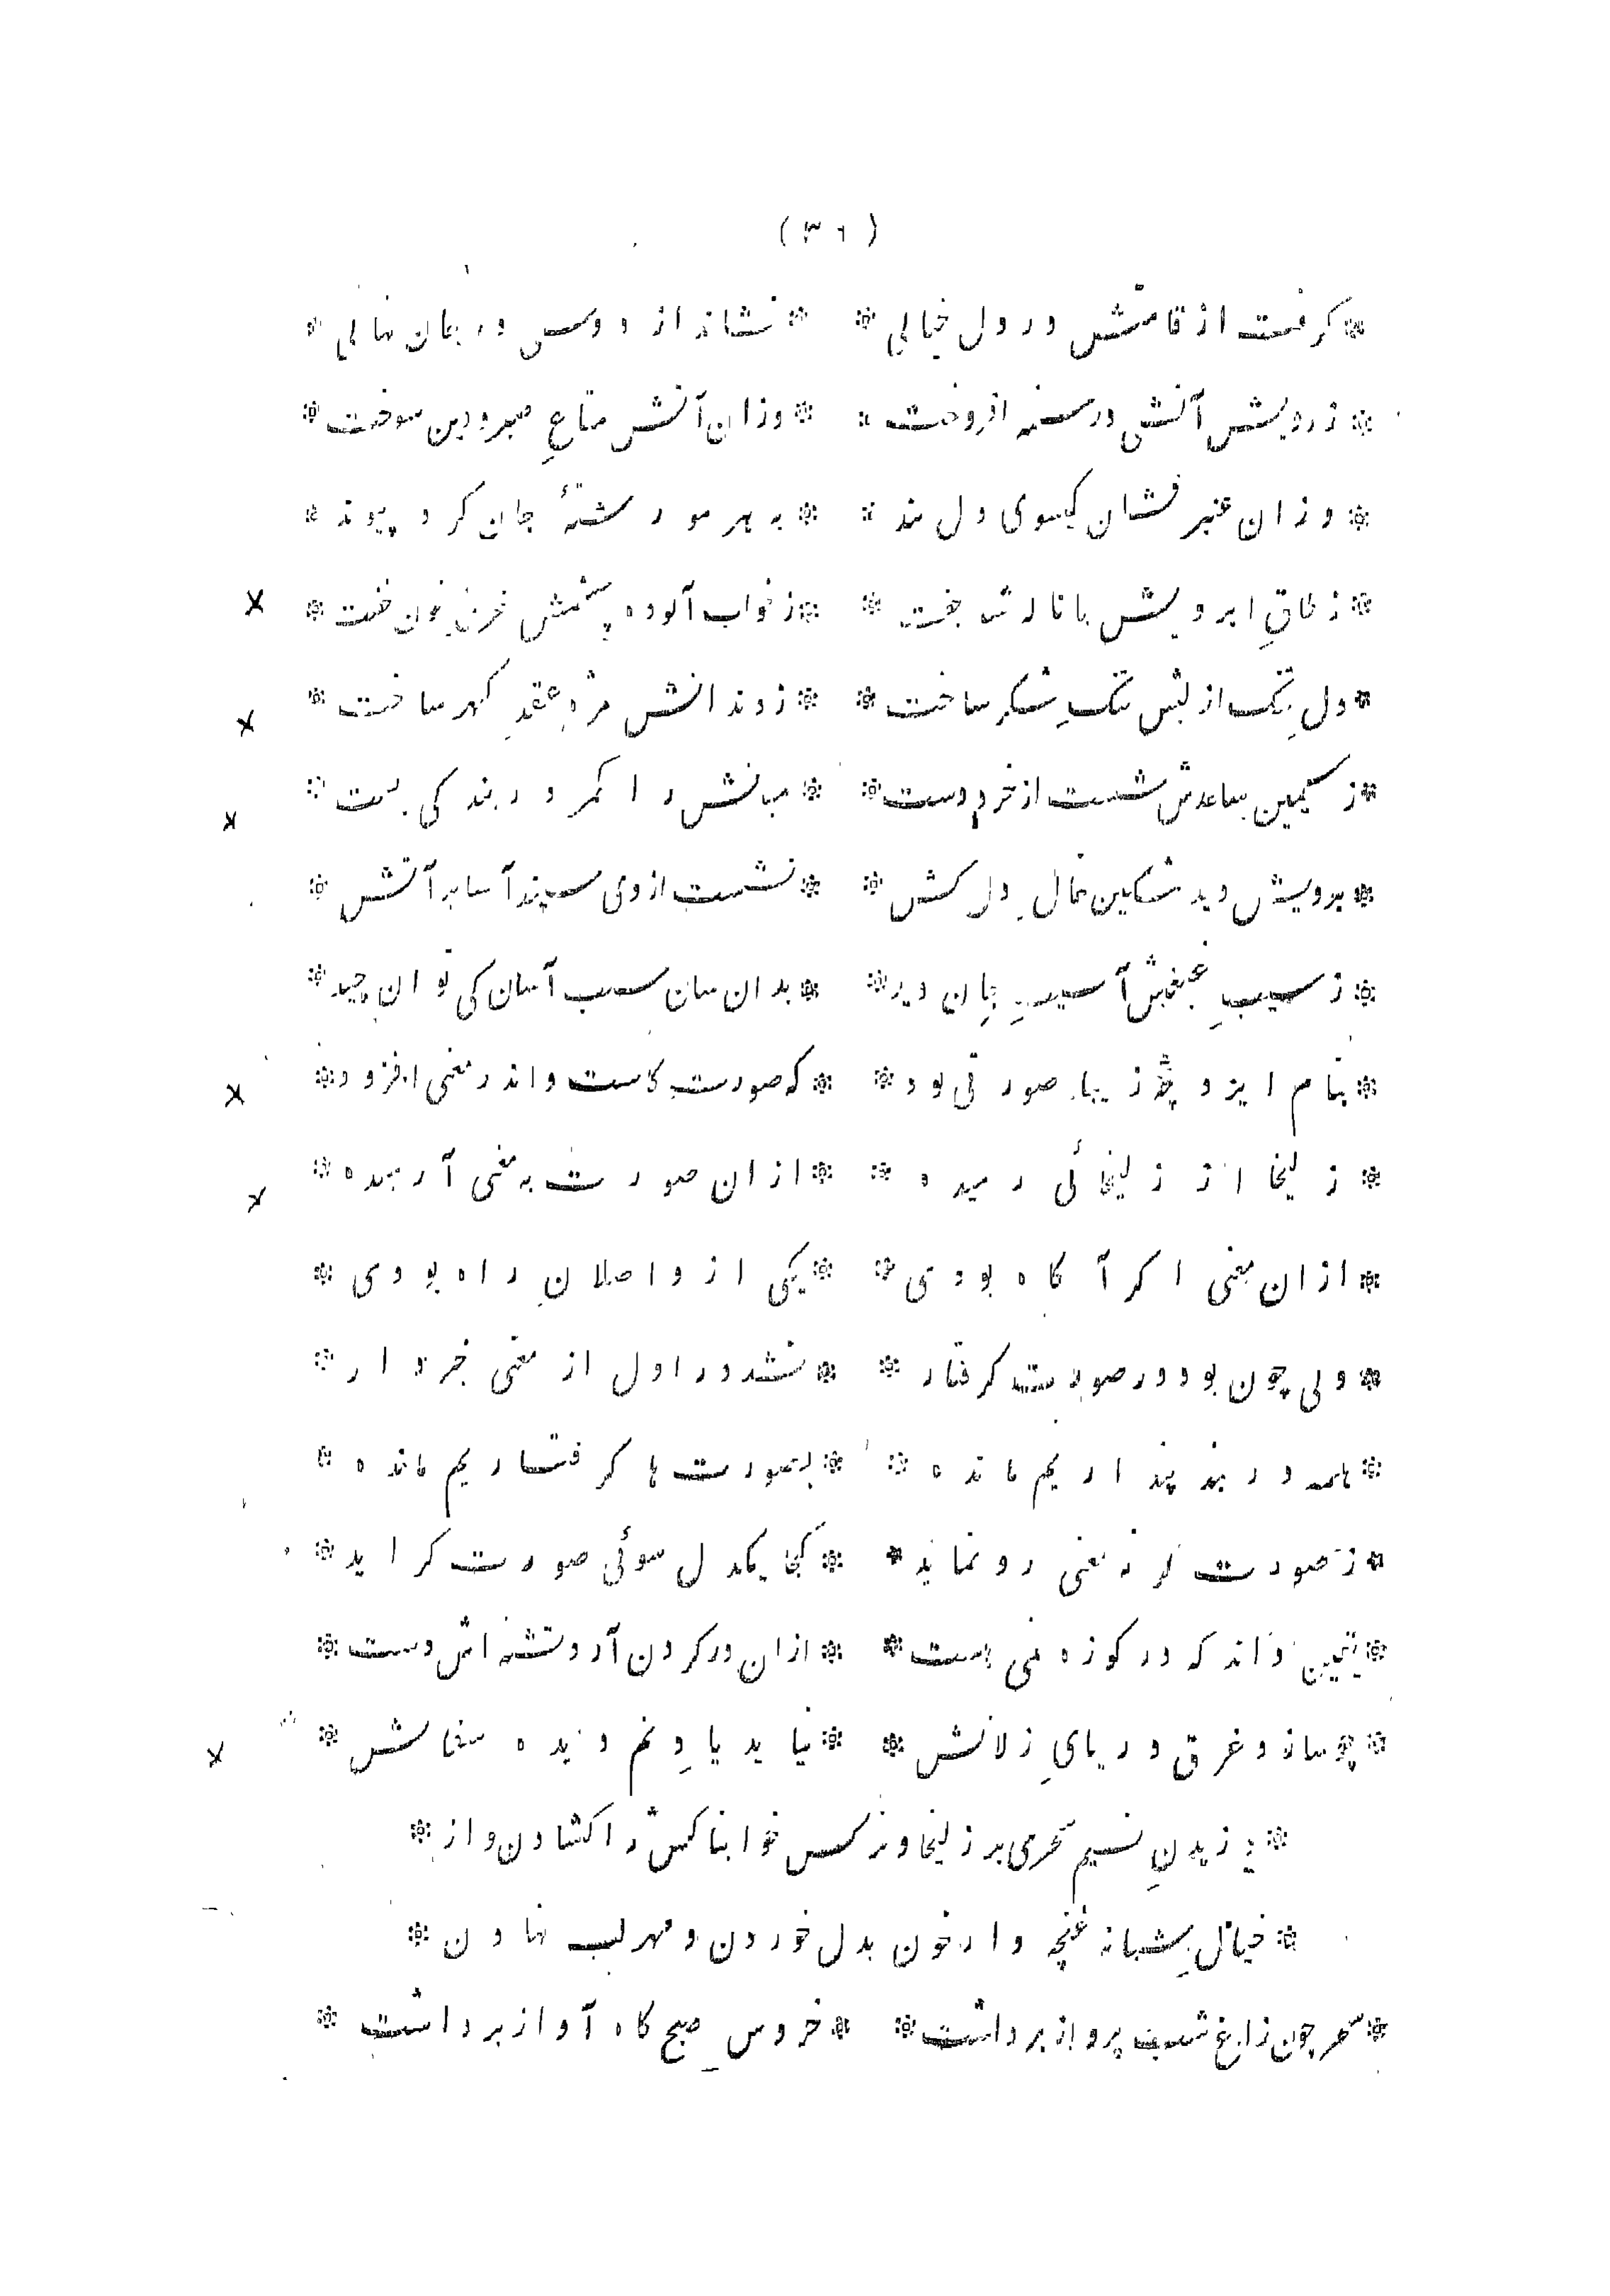 (۳۶)
* کرفت از قامتش در دل خیالی * * نشاند از دوستی در جان نهالی *
* ز رویش آتشی در سینه افروخت * * وزان آتش متاعِ صبر و دین سوخت *
* وزان عنبر فشان کیسوی دل بند * * به هر مو رشتهٔ جان کرد پیوند *
* ز طاقِ ابرویش با ناله شد جفت * * ز خواب آلوده چشمش غرق خون خفت *
* دلِ تنک از لبش تنکِ شکر ساخت * * ز دندانش مژه عقدِ کهر ساخت *
* ز سیمین ساعدش شست از خرد دست * * میانش را کمر در بندکی بست *
* برویش دید مشکین خالِ دل کش * * نشست از وی سپند آسا بر آتش *
* ز سیبِ غبغبش آسیبِ جان دید * * بدان سان سیب آسان کی توان چید *
* بنام ایزد چه زیبا صورتی بود * * که صورت کاست و اندر معنی افزود *
* زلیخا از زلیخائی رمیده * * ازان صورت به معنی آرمیده *
* ازان معنی اکر آکاه بودی * * یکی از واصلانِ راه بودی *
* ولی چون بود در صورت کرفتار * * نشد در اول از معنی خبردار *
* همه در بند پنداریم مانده * * بصورت ها کرفتاریم مانده *
* ز صورت کر نه معنی رو نماید * * کجا یکدل سوئی صورت کراید *
* یقین داند که در کوزه نمی هست * * ازان در کردن آرد تشنه اش دست *
* چو سازد غرق دریایِ زلالش * * نیاید یادِ نم دیده سفالش *
* وزیدنِ نسیم سحری بر زلیخا و نرکس خوابناکش را کشادن و از *
* خیالِ شبانه غنچه وار خون بدل خوردن و مهر لب نهادن *
* سحر چون زاغ شب پرواز برداشت * * خروس صبح کاه آواز برداشت *